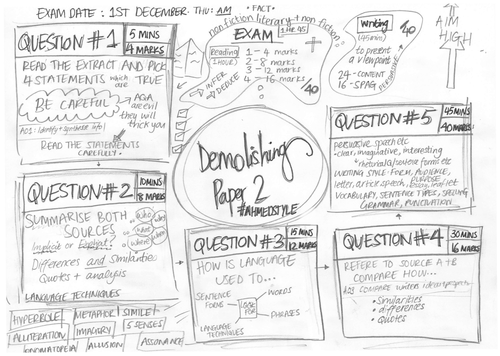 EXAM DATE : 1ST DECEMBER. THU: AM
QUESTION #1
5 MINS
4 MARKS
READ THE EXTRACT AND PICK
4 STATEMENTS which are TRUE
BE CAREFUL
AQA
are evil
they will
trick you
AO1: Identify + synthesise info
READ THE STATEMENTS
CAREFULLY.
*FACT*
nonfiction literary + non fiction
EXAM
1 HR 45
Reading
1 HOUR
1 - 4 marks
2 - 8 marks
3 - 12 marks
4 - 16 marks
/40
INFER
DEDUCE
Writing
(45 mins)
/40
to present
a viewpoint
24 - CONTENT
16 - SPAG
AIM
HIGH
Demolishing
Paper 2
#AHMEDSTYLE
QUESTION #5
45 MINS
40 MARKS
persuasive, speech etc
clear, imaginative, interesting
rhetorical/sentence forms etc
WRITING STYLE: FORM, AUDIENCE,
PURPOSE
letter, article, speech, essay, leaflet
VOCABULARY, SENTENCE TYPES, SPELLING
GRAMMAR, PUNCTUATION
QUESTION #2
10 MINS
8 MARKS
SUMMARISE BOTH
SOURCES
Who?
what?
where?
when?
Implicit or Explicit?
Differences and Similarities
Quotes + analysis
LANGUAGE TECHNIQUES
QUESTION #3
15 MINS
12 MARKS
HOW IS LANGUAGE
USED TO...
SENTENCE
FORMS
LOOK
FOR
WORDS
PHRASES
LANGUAGE
TECHNIQUES
QUESTION #4
30 MINS
16 MARKS
REFERE TO SOURCE A + B
COMPARE HOW...
AO3 COMPARE writers ideas + perspectives
• Similarities
• differences
• Quotes
HYPERBOLE
METAPHOR
SIMILE
ALLITERATION
IMAGERY
5 SENSES
ONOMATOPOEIA
ALLUSION
ASSONANCE